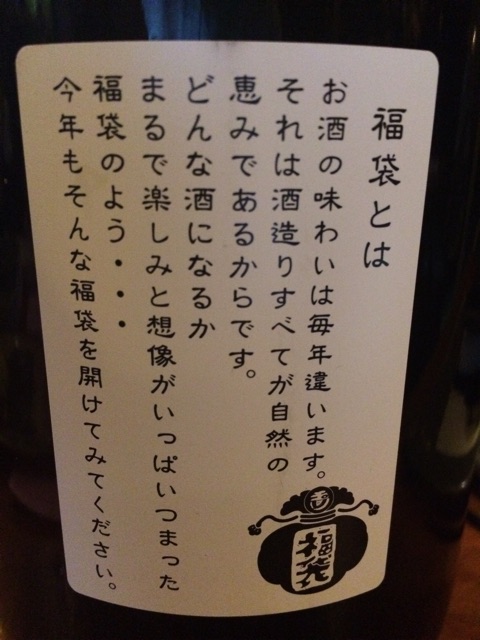 福袋とは
お酒の味わいは毎年違います。
それは酒造りすべてが自然の
恵みであるからです。
どんな酒になるか
まるで楽しみと想像がいっぱいつまった
福袋のよう・・・
今年もそんな福袋を開けてみてください。
福袋